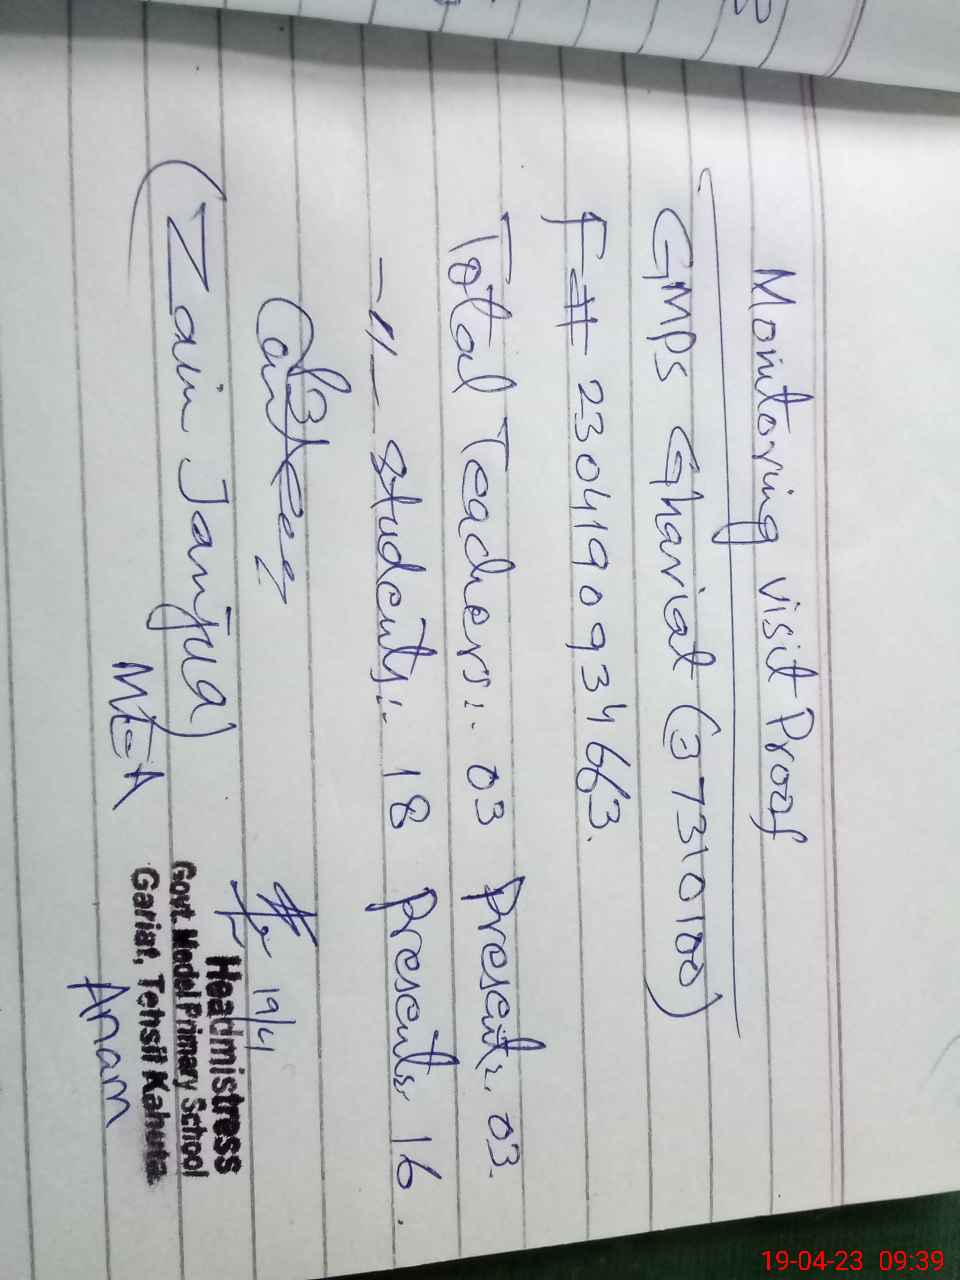 Monitoring visit Proof
GMPS Ghariat (37310100)
F# 23041909334663.
Total Teachers:. 03 Present:. 03.
-"- students:. 18 Present:. 16.
(Zain Janjua)
MEA
19/4
Headmistress
Govt. Model Primary School
Gariat, Tehsil Kahuta
Anam
19-04-23 09:39